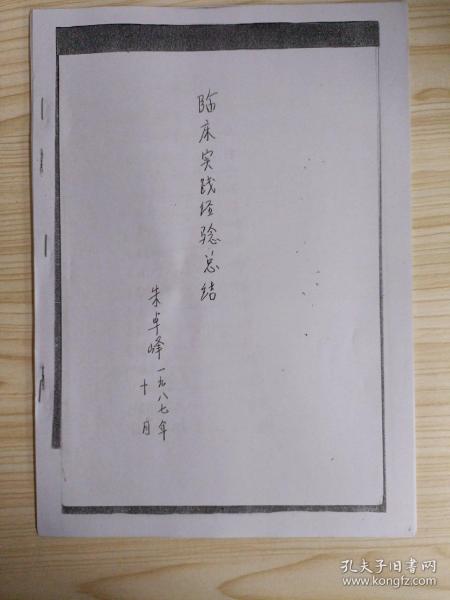 临床实践经验总结
朱卓峰一九八七年
十月
孔夫子旧书网
www.kongfz.com